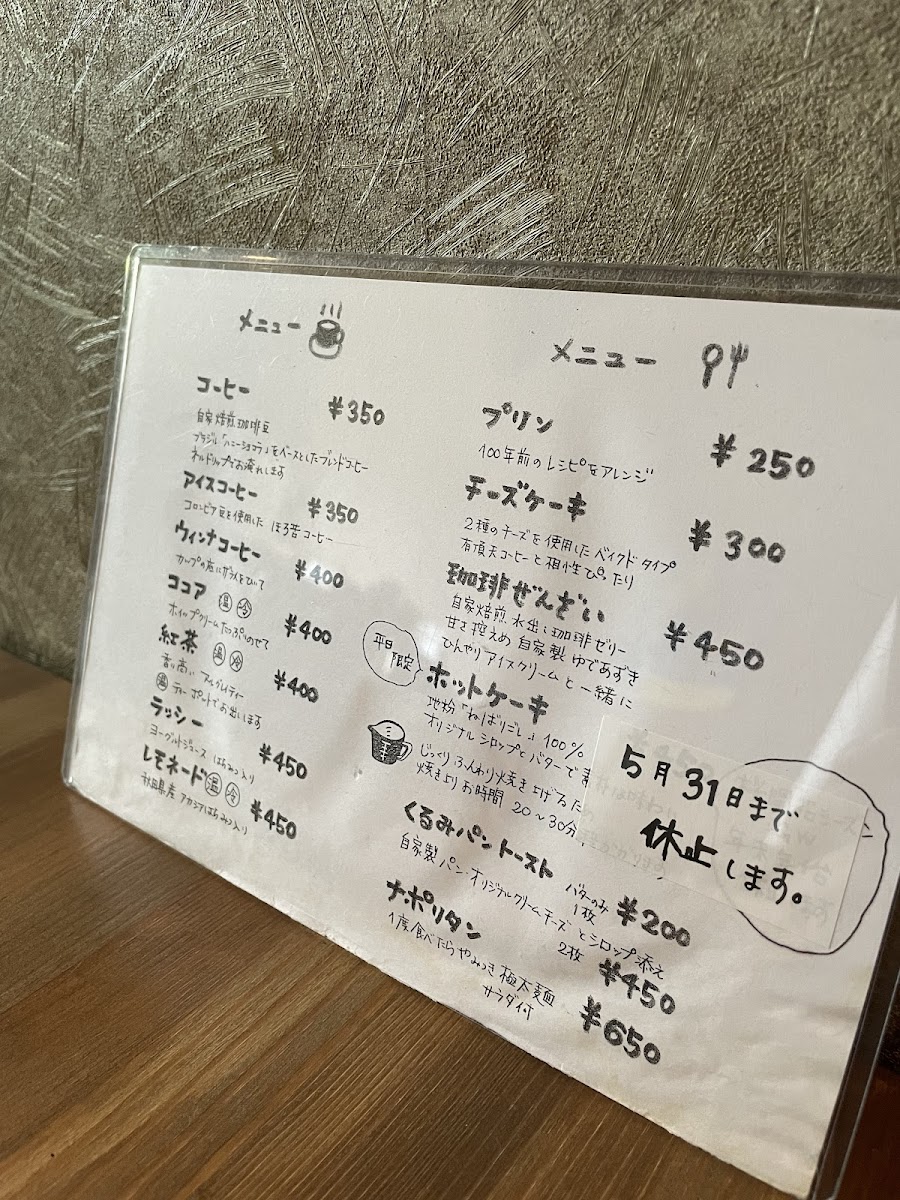 メニュー
コーヒー ¥350
自家焙煎珈琲豆
ブラジル「ハニーショコラ」をベースとしたブレンドコーヒー
ネルドリップでお淹れします
アイスコーヒー ¥350
コロンビア豆を使用した ほろ苦コーヒー
ウィンナコーヒー ¥400
カップの底にザラメをひいて
ココア 温 冷 ¥400
ホイップクリームたっぷりのせて
紅茶 温 冷 ¥400
香り高い アールグレイティー
温 ティーポットでお出します
ラッシー ¥450
ヨーグルトジュース はちみつ入り
レモネード 温 冷 ¥450
秋田県産 アカシアはちみつ入り
メニュー
プリン ¥250
100年前のレシピをアレンジ
チーズケーキ ¥300
2種のチーズを使用したベイクドタイプ
有頂天コーヒーと相性ぴったり
珈琲ぜんざい ¥450
自家焙煎 水出し珈琲ゼリー
甘さ控えめ 自家製 ゆであずき
ひんやりアイスクリームと一緒に
平日
限定
ホットケーキ
地粉「ねばりごし」100%
オリジナルシロップとバターで
じっくりふんわり焼き上げるた
焼き上り お時間 20~30分
5月31日まで
休止します。
くるみパントースト バターのみ 1枚 ¥200
自家製パン・オリジナルクリームチーズとシロップ添え
2枚 ¥450
ナポリタン ¥650
1度食べたらやみつき 極太麺
サラダ付